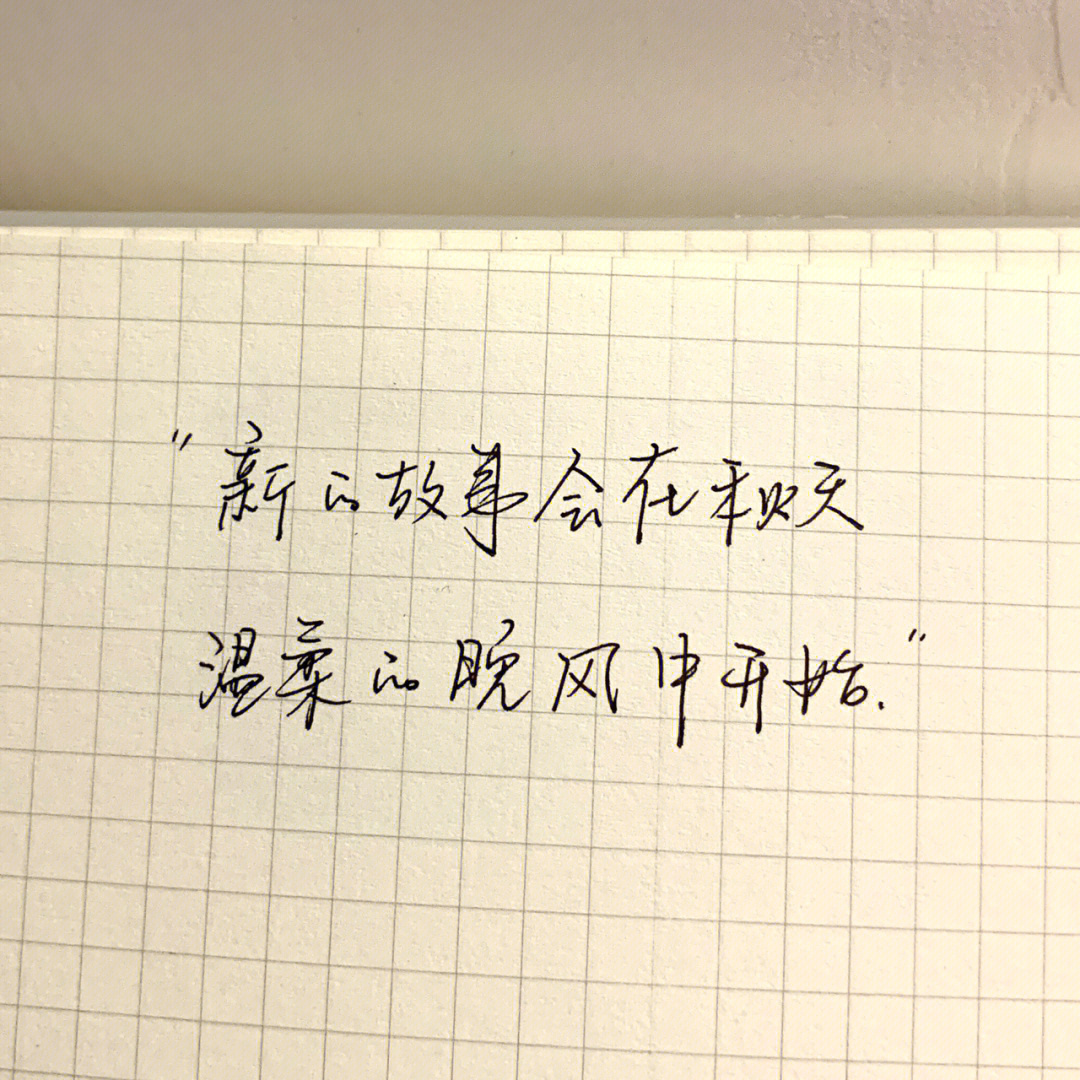 "新的故事会在秋天
温柔的晚风中开始."